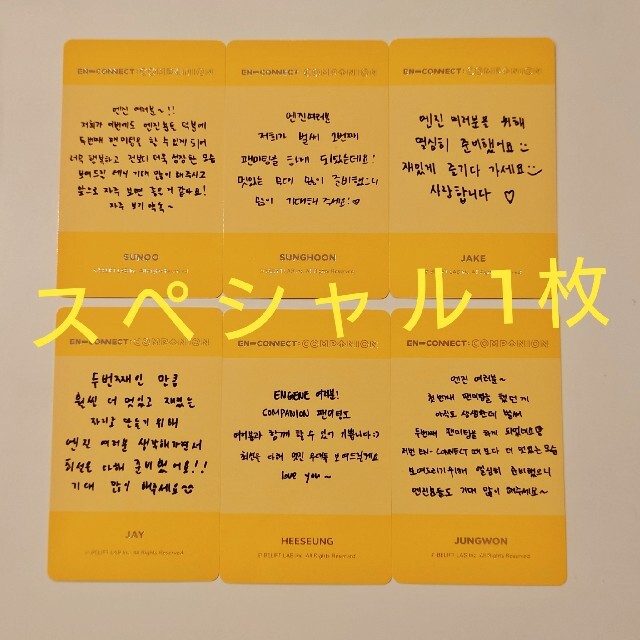 EN-CONNECT: COMPANION
엔진 여러분~!!
저희가 이번에도 엔진분들 덕분에
두번째 팬미팅을 할 수 있게 되어
너무 행복하고 전보다 더욱 성장한 모습
보여드릴 테니 기대 많이 해주시고
앞으로 자주 보면 좋을거 같아요!
자주 보기 약속~
SUNOO
EN-CONNECT: COMPANION
엔진여러분
저희가 벌써 2번째
팬미팅을 하게 되었는데요!
멋있는 무대 많이 준비했으니
많이 기대해 주세요!♡
SUNGHOON
All Rights Reserved
EN-CONNECT: COMPANION
엔진 여러분을 위해
열심히 준비했어요
재밌게 즐기다 가세요
사랑합니다 ♡
JAKE
スペシャル1枚
EN-CONNECT: COMPANION
두번째인 만큼
훨씬 더 멋있고 재밌는
자리로 만들기 위해
엔진 여러분 생각해가면서
최선을 다해 준비했어요!!
기대 많이 해주세요
JAY
© BELIFT LAB Inc. All Rights Reserved
EN-CONNECT: COMPANION
ENGENE 여러분!
COMPANION 팬미팅도
여러분과 함께 할 수 있어 기쁩니다:)
최선을 다해 멋진 무대들 보여드릴게요
love you~
HEESEUNG
© BELIFT LAB Inc. All Rights Reserved
EN-CONNECT: COMPANION
엔진 여러분~
첫번째 팬미팅을 했던게
아직도 생생한데 벌써
두번째 팬미팅을 하게 되었네요
저번 EN-CONNECT 때 보다 더 멋있는 모습
보여드리기위해 열심히 준비했으니
엔진분들도 기대 많이 해주세요~
JUNGWON
© BELIFT LAB Inc. All Rights Reserved